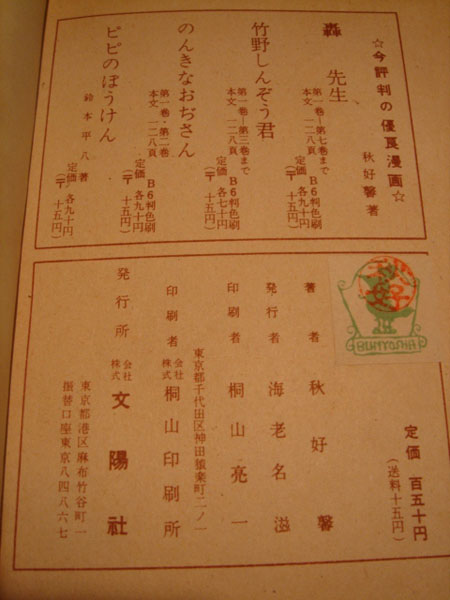 ☆今評判の優良漫画☆
秋好馨著
轟先生
第一巻―第七巻まで B6判色刷
本文 一二八頁 定価 各九十円
(〒 十五円)
竹野しんぞう君
第一巻―第三巻まで B6判色刷
本文 一二八頁 定価 各七十円
(〒 十五円)
のんきなおぢさん
第一巻・第二巻 B6判色刷
本文 一二八頁 定価 各九十円
(〒 十五円)
ピピのぼうけん
鈴木平八著
定価 各九十円
(〒 十五円)
定価 百五十円
(送料十五円)
BUNYOSHA
著者 秋好馨
発行者 海老名滋
印刷者 桐山亮一
東京都千代田区神田猿楽町二ノ一
印刷者 株式会社 桐山印刷所
発行所 株式会社 文陽社
東京都港区麻布竹谷町一
振替口座東京八四八六七